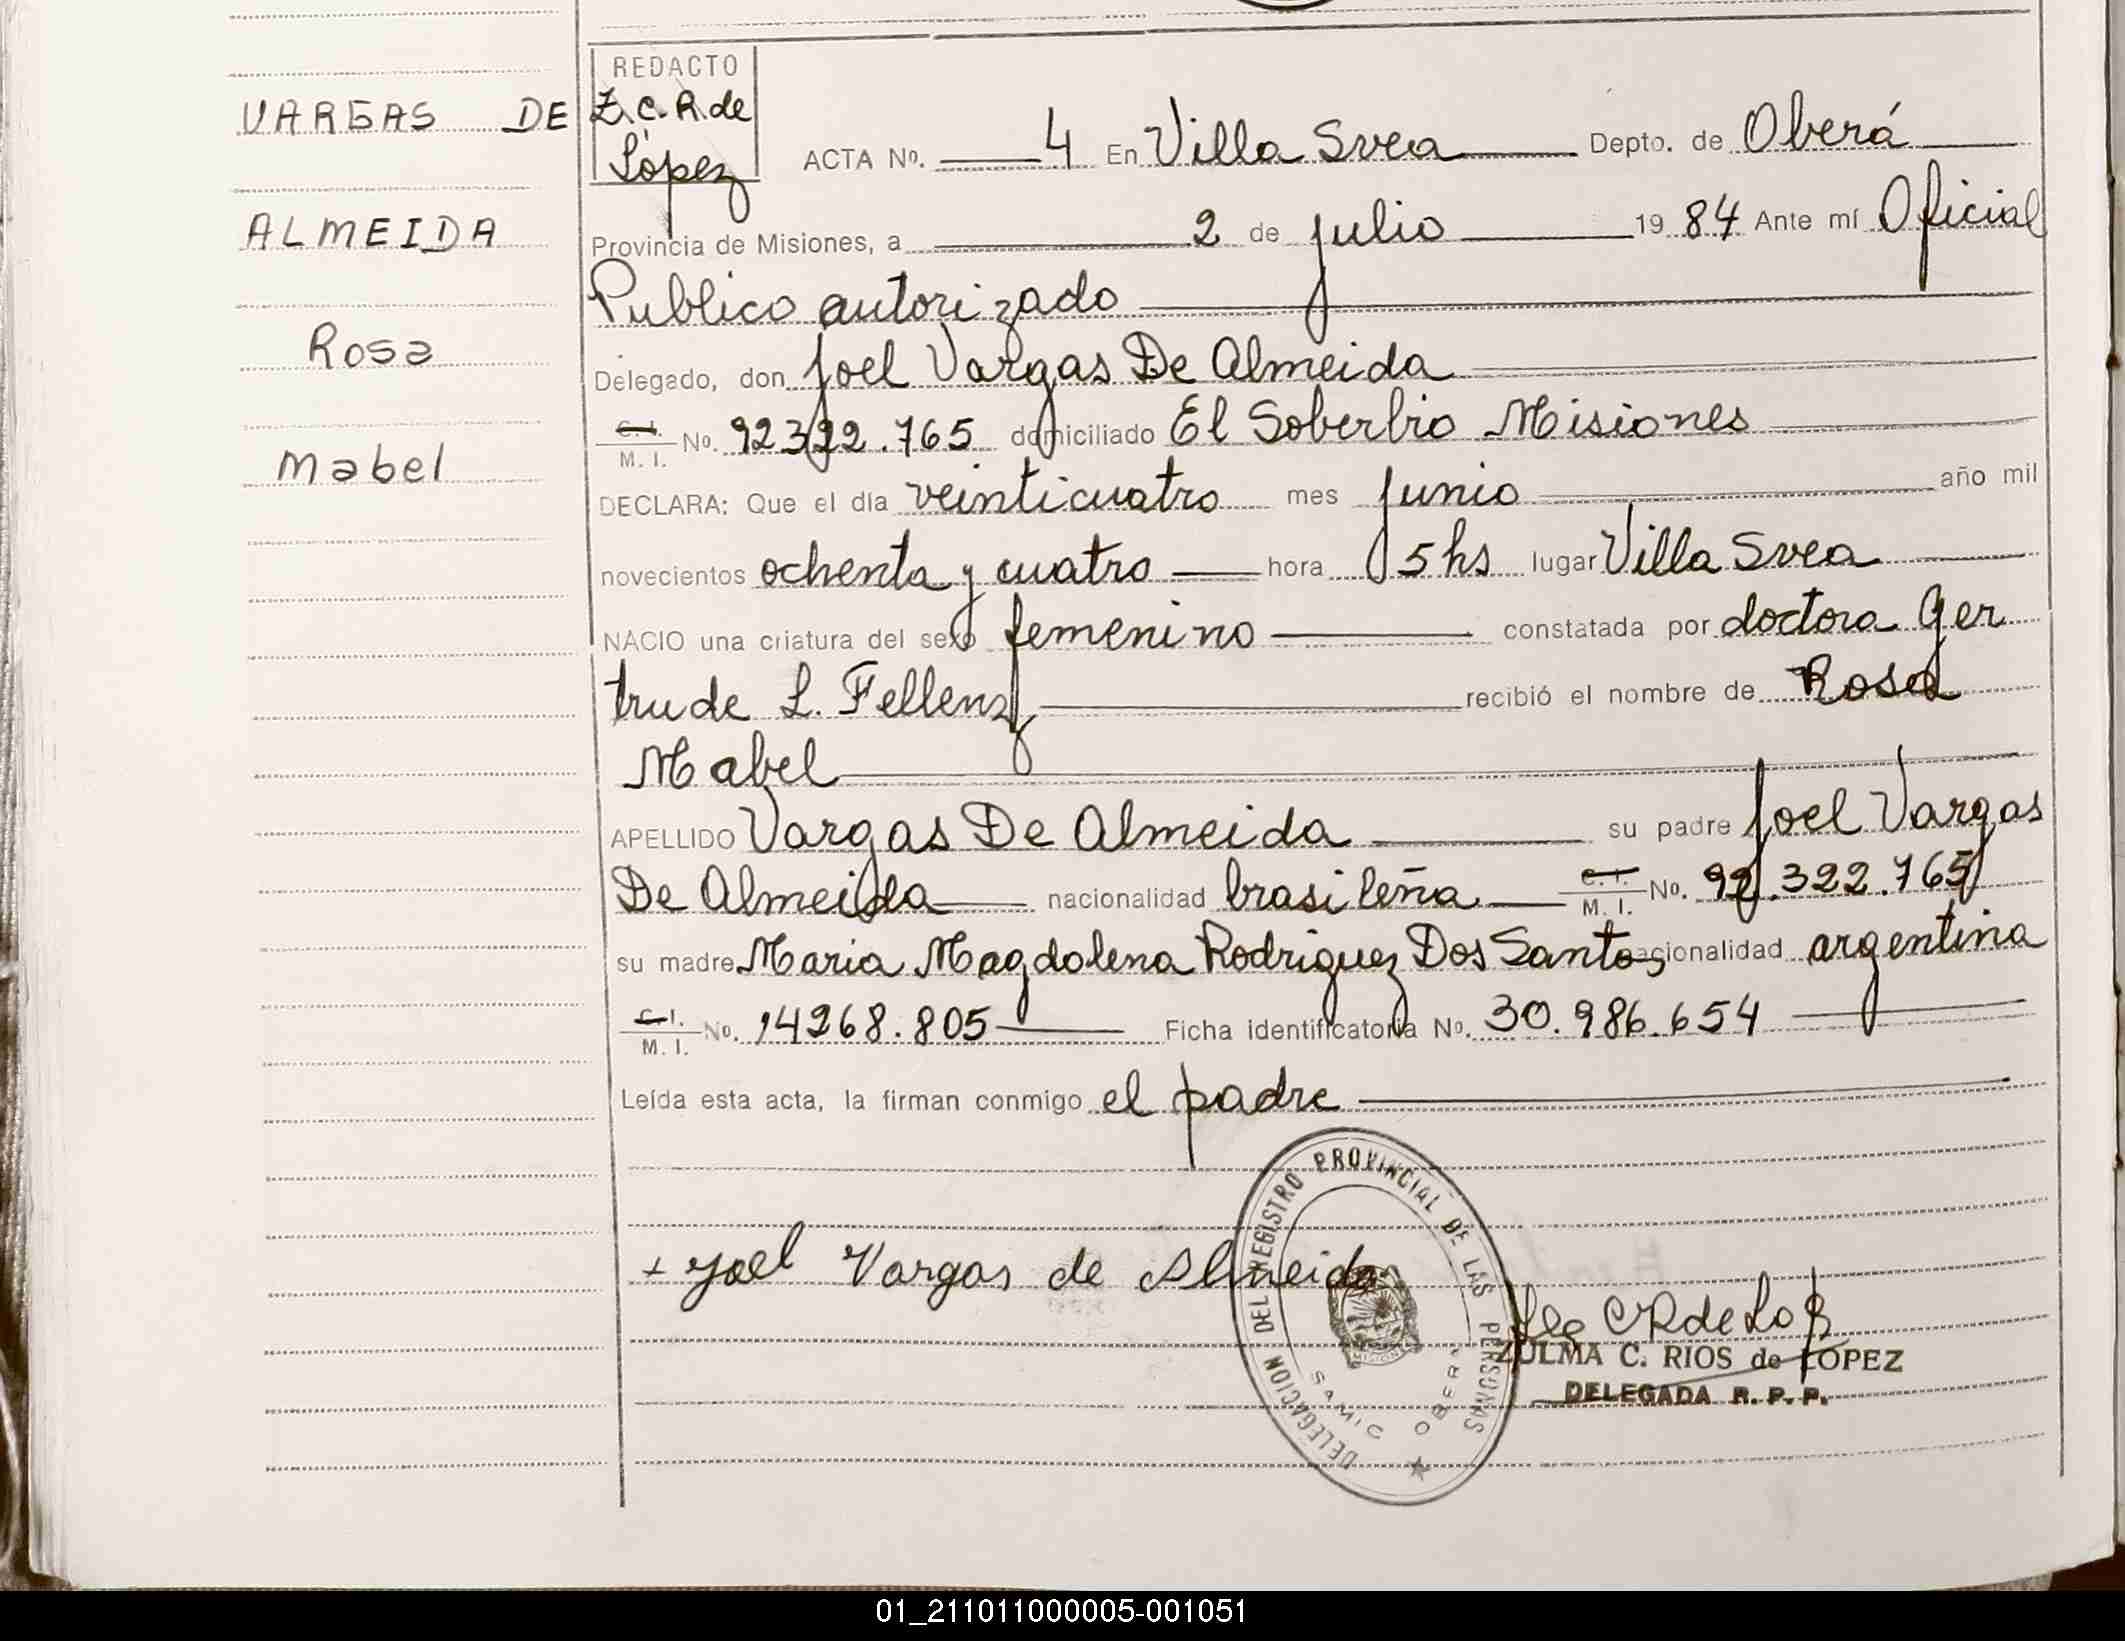 VARGAS DE
ALMEIDA
Rosa
Mabel
REDACTO
Z.C.R.de
López
ACTA No. 4 En Villa Svea Depto. de Oberá
Provincia de Misiones, a 2 de julio 1984 Ante mí Oficial
Publico autorizado
Delegado, don Joel Vargas De Almeida
C. I. M. I. No. 92322.765 domiciliado El Soberbio Misiones
DECLARA: Que el día veinticuatro mes junio año mil
novecientos ochenta y cuatro hora 5 hs lugar Villa Svea
NACIO una criatura del sexo femenino constatada por doctora Ger
trude L. Fellenz recibió el nombre de Rosa
Mabel
APELLIDO Vargas De Almeida su padre Joel Vargas
De Almeida nacionalidad brasileña C. I. M. I. No. 92.322.765
su madre Maria Magdalena Rodriguez Dos Santos nacionalidad argentina
C. I. M. I. No. 14268.805 Ficha identificatoria No. 30.986.654
Leída esta acta, la firman conmigo el padre
x Joel Vargas de Almeida
DELEGACION DEL REGISTRO PROVINCIAL DE LAS PERSONAS
SAMIC OBERA
ZULMA C. RIOS de LOPEZ
DELEGADA R. P. P.
01_211011000005-001051